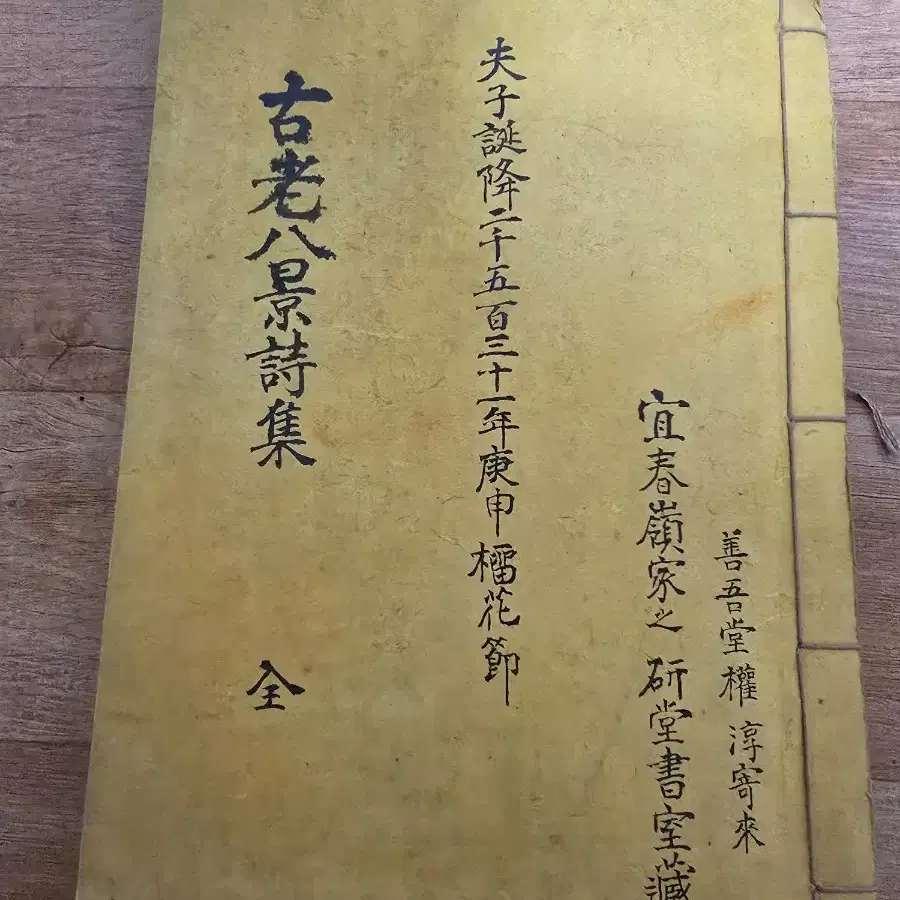 善吾堂權 淳寄來
宜春嶺家之 研堂書室藏
夫子誕降二千五百三十一年庚申榴花節
古老八景詩集 全